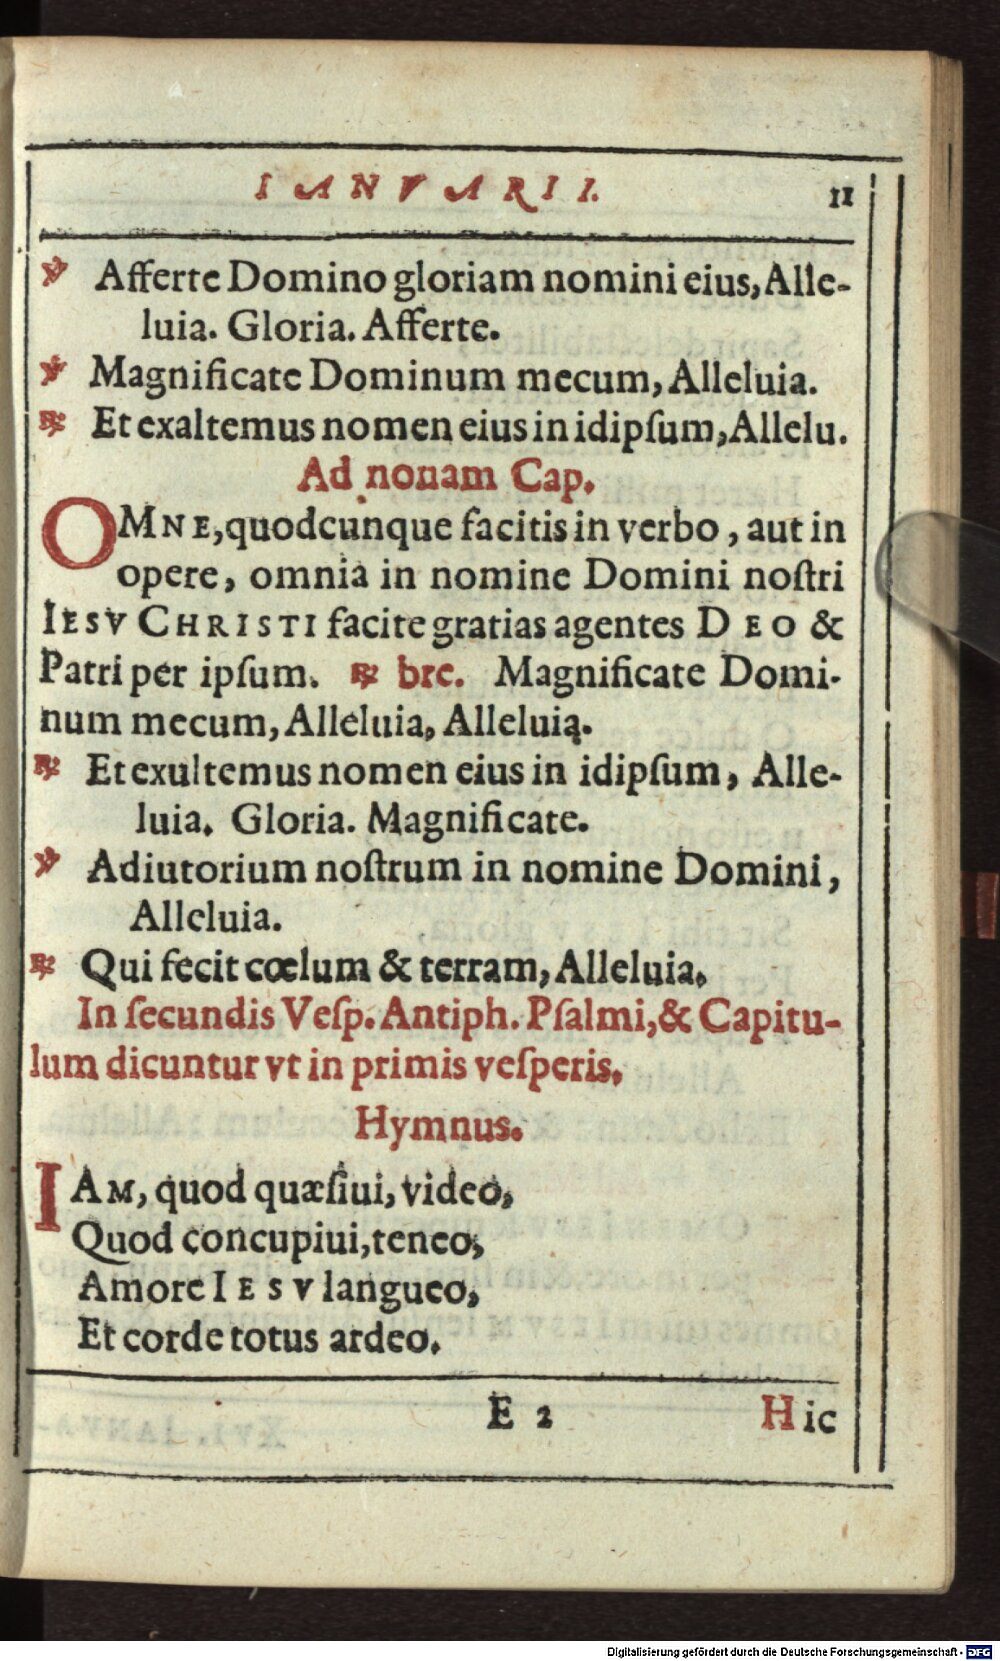 IANVARII. 11
℣ Afferte Domino gloriam nomini eius, Alle-
luia. Gloria. Afferte.
℣ Magnificate Dominum mecum, Alleluia.
℟ Et exaltemus nomen eius in idipſum, Allelu.
Ad nonam Cap.
OMNE, quodcunque facitis in verbo, aut in
opere, omnia in nomine Domini noſtri
IESV CHRISTI facite gratias agentes DEO &
Patri per ipſum. ℟ bre. Magnificate Domi-
num mecum, Alleluia, Alleluia.
℟ Et exultemus nomen eius in idipſum, Alle-
luia. Gloria. Magnificate.
℣ Adiutorium noſtrum in nomine Domini,
Alleluia.
℟ Qui fecit cœlum & terram, Alleluia.
In ſecundis Veſp. Antiph. Pſalmi, & Capitu-
lum dicuntur vt in primis veſperis.
Hymnus.
IAM, quod quæſiui, video,
Quod concupiui, teneo,
Amore IESV langueo,
Et corde totus ardeo.
E 2 Hic
Digitalisierung gefördert durch die Deutsche Forschungsgemeinschaft - DFG